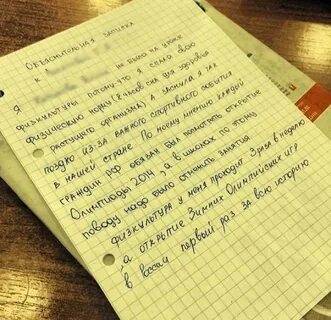 Объяснительная записка
Я не была на уроке
физкультуры потому-что я спала всю
физическую норму (8 часов сна для здоровья
растущего организма). А заснула я так
поздно из-за важного спортивного события
в нашей стране. По моему мнению каждый
гражданин РФ обязан был посмотреть открытие
Олимпиады 2014, а в школах по этому
поводу надо было отменить занятия
физкультура у меня проходит 3 раза в неделю
а открытие Зимних Олимпийских игр
в России первый раз за всю историю